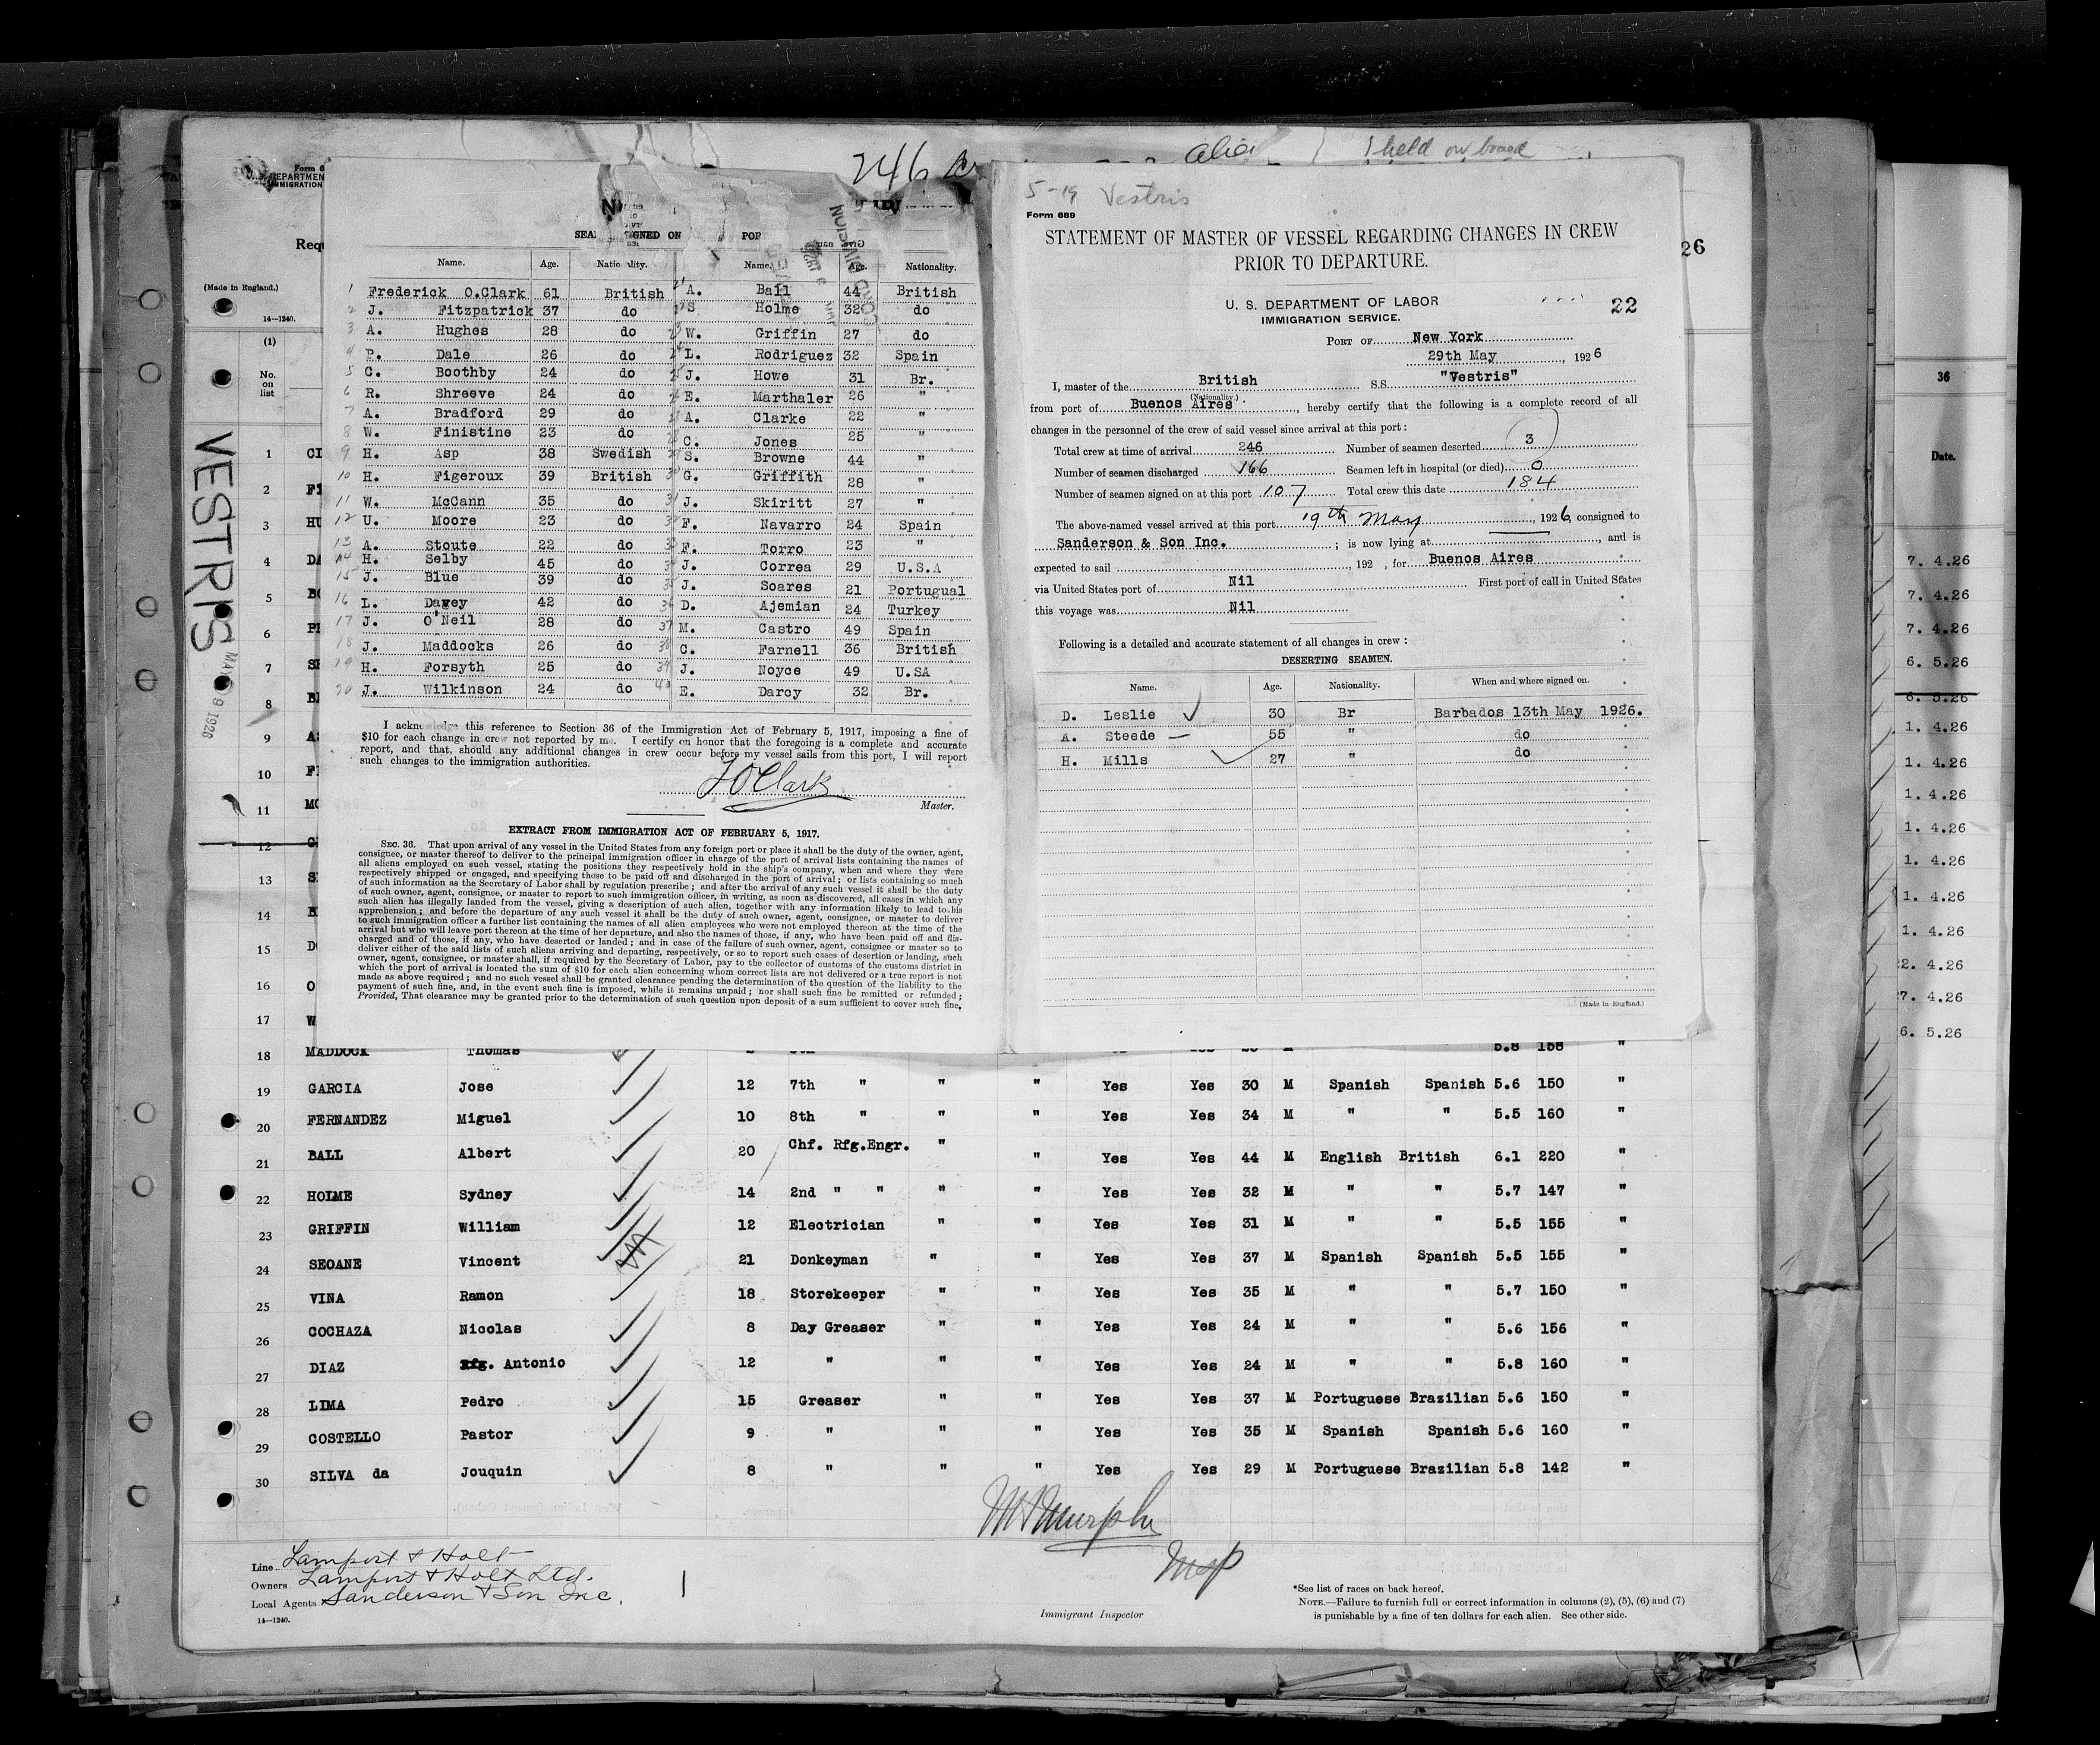 246
alien
1 held on board
Form 6
U. S. DEPARTMEN
IMMIGRATION
Requ
(Made in England.)
14—1240.
(1)
No.
on
list
VESTRIS
MAY 19 1926
26
36
Date.
SEA GNED ON POR
Name. Age. Nationality. Name. Age. Nationality.
1 Frederick O.Clark 61 British 21 A. Ball 44 British
2 J. Fitzpatrick 37 do 22 S Holme 32 do
3 A. Hughes 28 do 23 W. Griffin 27 do
4 P. Dale 26 do 24 L. Rodriguez 32 Spain
5 C. Boothby 24 do 25 J. Howe 31 Br.
6 R. Shreeve 24 do 26 E. Marthaler 26 "
7 A. Bradford 29 do 27 A. Clarke 22 "
8 W. Finistine 23 do 28 C. Jones 25 "
9 H. Asp 38 Swedish 29 S. Browne 44 "
10 H. Figeroux 39 British 30 G. Griffith 28 "
11 W. McCann 35 do 31 J. Skiritt 27 "
12 U. Moore 23 do 32 F. Navarro 24 Spain
13 A. Stoute 22 do 33 F. Torro 23 "
14 H. Selby 45 do 34 J. Correa 29 U.S.A
15 J. Blue 39 do 35 J. Soares 21 Portugual
16 L. Davey 42 do 36 D. Ajemian 24 Turkey
17 J. O'Neil 28 do 37 M. Castro 49 Spain
18 J. Maddocks 26 do 38 C. Farnell 36 British
19 H. Forsyth 25 do 39 J. Noyce 49 U.SA
20 J. Wilkinson 24 do 40 E. Darcy 32 Br.
I acknowledge this reference to Section 36 of the Immigration Act of February 5, 1917, imposing a fine of
$10 for each change in crew not reported by me. I certify on honor that the foregoing is a complete and accurate
report, and that, should any additional changes in crew occur before my vessel sails from this port, I will report
such changes to the immigration authorities.
F O Clark
Master.
EXTRACT FROM IMMIGRATION ACT OF FEBRUARY 5, 1917.
SEC. 36. That upon arrival of any vessel in the United States from any foreign port or place it shall be the duty of the owner, agent,
consignee, or master thereof to deliver to the principal immigration officer in charge of the port of arrival lists containing the names of
all aliens employed on such vessel, stating the positions they respectively hold in the ship's company, when and where they were
respectively shipped or engaged, and specifying those to be paid off and discharged in the port of arrival; or lists containing so much
of such information as the Secretary of Labor shall by regulation prescribe; and after the arrival of any such vessel it shall be the duty
of such owner, agent, consignee, or master to report to such immigration officer, in writing, as soon as discovered, all cases in which any
such alien has illegally landed from the vessel, giving a description of such alien, together with any information likely to lead to his
apprehension; and before the departure of any such vessel it shall be the duty of such owner, agent, consignee, or master to deliver
to such immigration officer a further list containing the names of all alien employees who were not employed thereon at the time of the
arrival but who will leave port thereon at the time of her departure, and also the names of those, if any, who have been paid off and dis-
charged and of those, if any, who have deserted or landed; and in case of the failure of such owner, agent, consignee or master so to
deliver either of the said lists of such aliens arriving and departing, respectively, or so to report such cases of desertion or landing, such
owner, agent, consignee, or master shall, if required by the Secretary of Labor, pay to the collector of customs of the customs district in
which the port of arrival is located the sum of $10 for each alien concerning whom correct lists are not delivered or a true report is not
made as above required; and no such vessel shall be granted clearance pending the determination of the question of the liability to the
payment of such fine, and, in the event such fine is imposed, while it remains unpaid; nor shall such fine be remitted or refunded;
Provided, That clearance may be granted prior to the determination of such question upon deposit of a sum sufficient to cover such fine.
5-19 Vestris
Form 689
STATEMENT OF MASTER OF VESSEL REGARDING CHANGES IN CREW
PRIOR TO DEPARTURE.
U. S. DEPARTMENT OF LABOR
IMMIGRATION SERVICE.
22
PORT OF New York
29th May, 1926
I, master of the British S.S. "Vestris"
(Nationality.)
from port of Buenos Aires, hereby certify that the following is a complete record of all
changes in the personnel of the crew of said vessel since arrival at this port:
Total crew at time of arrival 246 Number of seamen deserted 3
Number of seamen discharged 166 Seamen left in hospital (or died) 0
Number of seamen signed on at this port 107 Total crew this date 184
The above-named vessel arrived at this port 19th May, 1926, consigned to
Sanderson & Son Inc.; is now lying at , and is
expected to sail , 192 , for Buenos Aires
via United States port of Nil First port of call in United States
this voyage was Nil
Following is a detailed and accurate statement of all changes in crew:
DESERTING SEAMEN.
Name. Age. Nationality. When and where signed on.
D. Leslie 30 Br Barbados 13th May 1926.
A. Steede 55 " do
H. Mills 27 " do
(Made in England.)
1 CL
2 FI
3 HU
4 DA
5 BO
6
7 SH
8 B
9 AS
10 FI
11 MC
12
13 S
14
15 DO
16 O
17 W
18 MADDOCK Thomas 5.8 158 "
19 GARCIA Jose 12 7th " " " Yes Yes 30 M Spanish Spanish 5.6 150 "
20 FERNANDEZ Miguel 10 8th " " " Yes Yes 34 M " " 5.5 160 "
21 BALL Albert 20 Chf. Rfg.Engr. " " Yes Yes 44 M English British 6.1 220 "
22 HOLME Sydney 14 2nd " " " " Yes Yes 32 M " " 5.7 147 "
23 GRIFFIN William 12 Electrician " " Yes Yes 31 M " " 5.5 155 "
24 SEOANE Vincent 21 Donkeyman " " Yes Yes 37 M Spanish Spanish 5.5 155 "
25 VINA Ramon 18 Storekeeper " " Yes Yes 35 M " " 5.7 150 "
26 COCHAZA Nicolas 8 Day Greaser " " Yes Yes 24 M " " 5.6 156 "
27 DIAZ Rfg. Antonio 12 " " " Yes Yes 24 M " " 5.8 160 "
28 LIMA Pedro 15 Greaser " " Yes Yes 37 M Portuguese Brazilian 5.6 150 "
29 COSTELLO Pastor 9 " " " Yes Yes 35 M Spanish Spanish 5.6 160 "
30 SILVA da Jouquin 8 " " " Yes Yes 29 M Portuguese Brazilian 5.8 142 "
7. 4.26
7. 4.26
7. 4.26
6. 5.26
6. 5.26
1. 4.26
1. 4.26
1. 4.26
1. 4.26
1. 4.26
1. 4.26
1. 4.26
2. 4.26
7. 4.26
6. 5.26
Line Lamport & Holt
Owners Lamport & Holt Ltd.
Local Agents Sanderson & Son Inc.
14—1240.
Immigrant Inspector
*See list of races on back hereof.
NOTE.—Failure to furnish full or correct information in columns (2), (5), (6) and (7)
is punishable by a fine of ten dollars for each alien. See other side.